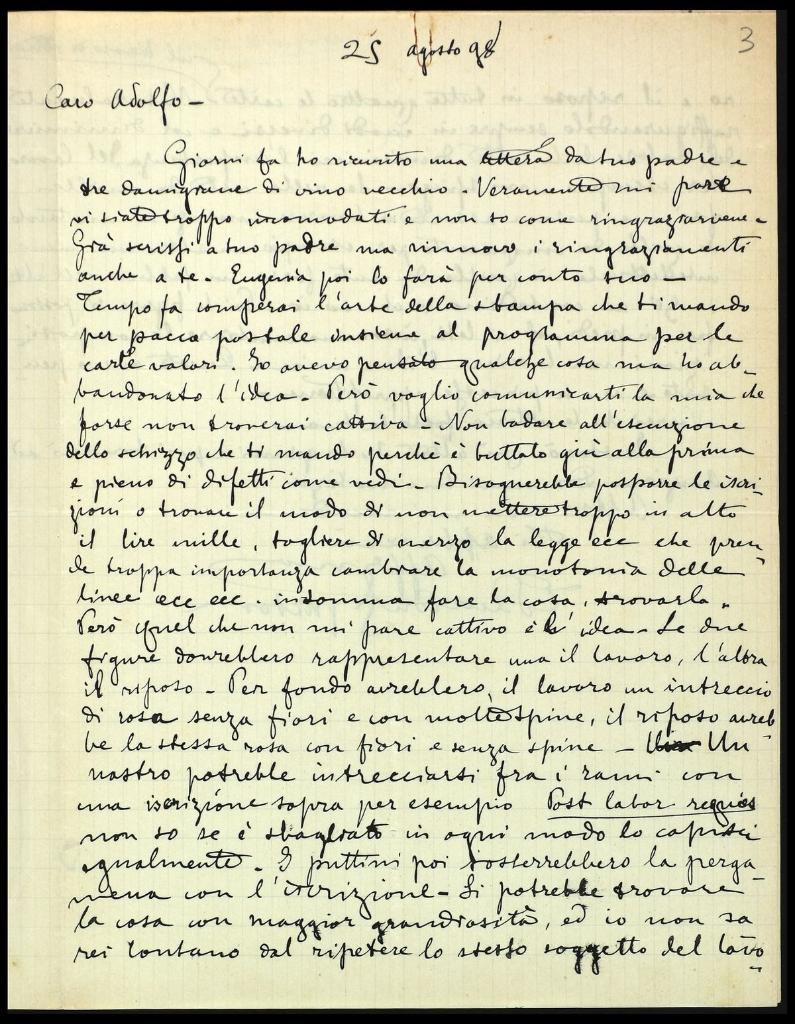 3
25 agosto 98
Caro Adolfo –
Giorni fa ho ricevuto una lettera da tuo padre e
tre damigiane di vino vecchio. Veramente mi pare
vi siate troppo incomodati e non so come ringraziarvene.
Già scrissi a tuo padre ma rinnovo i ringraziamenti
anche a te. Eugenia poi lo farà per conto suo –
Tempo fa comperai l'arte della stampa che ti mando
per pacco postale insieme al programma per le
carte valori. Io avevo pensato qualche cosa ma ho ab-
bandonato l'idea. Però voglio comunicarti la mia che
forse non troverai cattiva – Non badare all'esecuzione
dello schizzo che ti mando perchè è buttato giù alla prima
e pieno di difetti come vedi – Bisognerebbe posporre le iscri-
zioni o trovare il modo di non mettere troppo in alto
il lire mille, togliere di mezzo la legge ecc che pren-
de troppa importanza cambiare la monotonia delle
linee ecc ecc. insomma fare la cosa, trovarla.
Però quel che non mi pare cattivo è l'idea – Le due
figure dovrebbero rappresentare una il lavoro, l'altra
il riposo – Per fondo avrebbero, il lavoro un intreccio
di rosa senza fiori e con molte spine, il riposo avreb
be la stessa rosa con fiori e senza spine – Un
nastro potrebbe intrecciarsi fra i rami con
una iscrizione sopra per esempio Post labor requies
non so se è sbagliato in ogni modo lo capisci
egualmente. I puttini poi sosterrebbero la perga-
mena con l'iscrizione – Si potrebbe trovare
la cosa con maggior grandiosità, ed io non sa
rei lontano dal ripetere lo stesso soggetto del lavo-